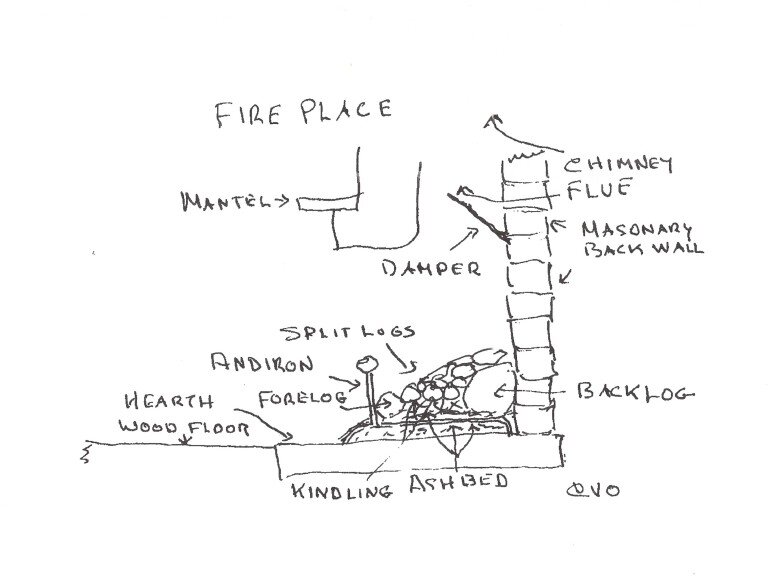 FIRE PLACE
CHIMNEY
FLUE
MANTEL
MASONARY
BACK WALL
DAMPER
SPLIT LOGS
ANDIRON
HEARTH
FORELOG
BACKLOG
WOOD FLOOR
KINDLING
ASH BED
EVO